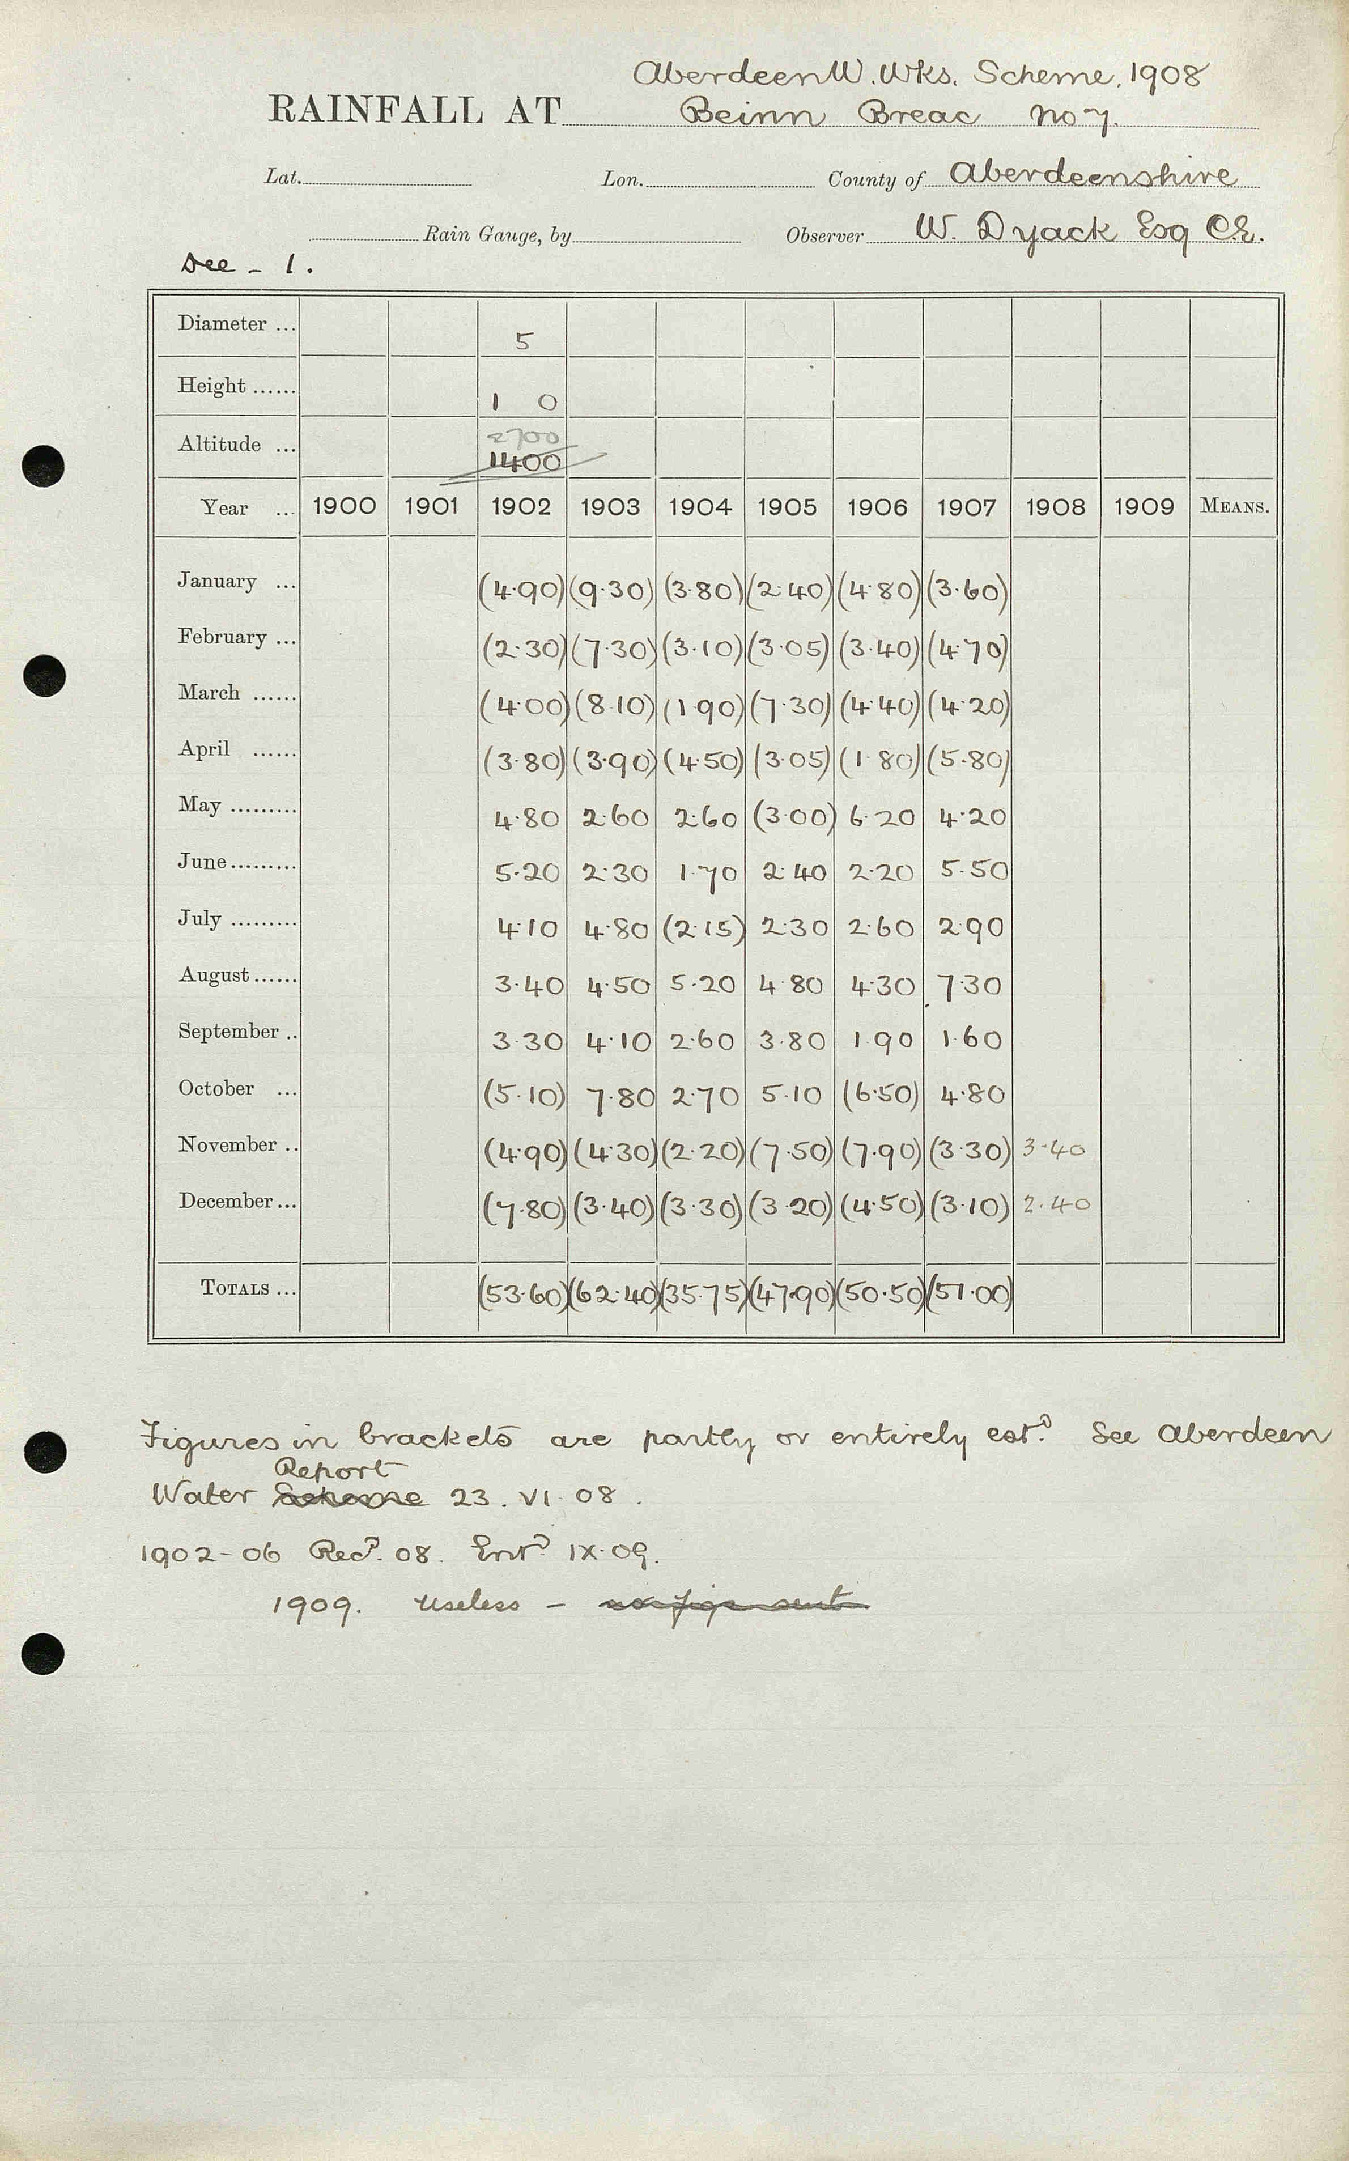 Aberdeen W. Wks. Scheme, 1908
RAINFALL AT Beinn Breac No 7.
Lat. Lon. County of Aberdeenshire
Rain Gauge, by Observer W. Dyack Esq CE.
Dee - 1.
Diameter ... 5
Height ...... 1 0
Altitude ... 2700
1400
Year ... 1900 1901 1902 1903 1904 1905 1906 1907 1908 1909 MEANS.
January ... (4.90) (9.30) (3.80) (2.40) (4.80) (3.60)
February ... (2.30) (7.30) (3.10) (3.05) (3.40) (4.70)
March ...... (4.00) (8.10) (1.90) (7.30) (4.40) (4.20)
April ...... (3.80) (3.90) (4.50) (3.05) (1.80) (5.80)
May ......... 4.80 2.60 2.60 (3.00) 6.20 4.20
June......... 5.20 2.30 1.70 2.40 2.20 5.50
July ......... 4.10 4.80 (2.15) 2.30 2.60 2.90
August...... 3.40 4.50 5.20 4.80 4.30 7.30
September .. 3.30 4.10 2.60 3.80 1.90 1.60
October ... (5.10) 7.80 2.70 5.10 (6.50) 4.80
November .. (4.90) (4.30) (2.20) (7.50) (7.90) (3.30) 3.40
December... (7.80) (3.40) (3.30) (3.20) (4.50) (3.10) 2.40
TOTALS ... (53.60) (62.40) (35.75) (47.90) (50.50) (51.00)
Figures in brackets are partly or entirely estd. See Aberdeen
Report
Water Scheme 23. VI. 08.
1902-06 Recd. 08. Entd IX.09.
1909. Useless - no figs sent